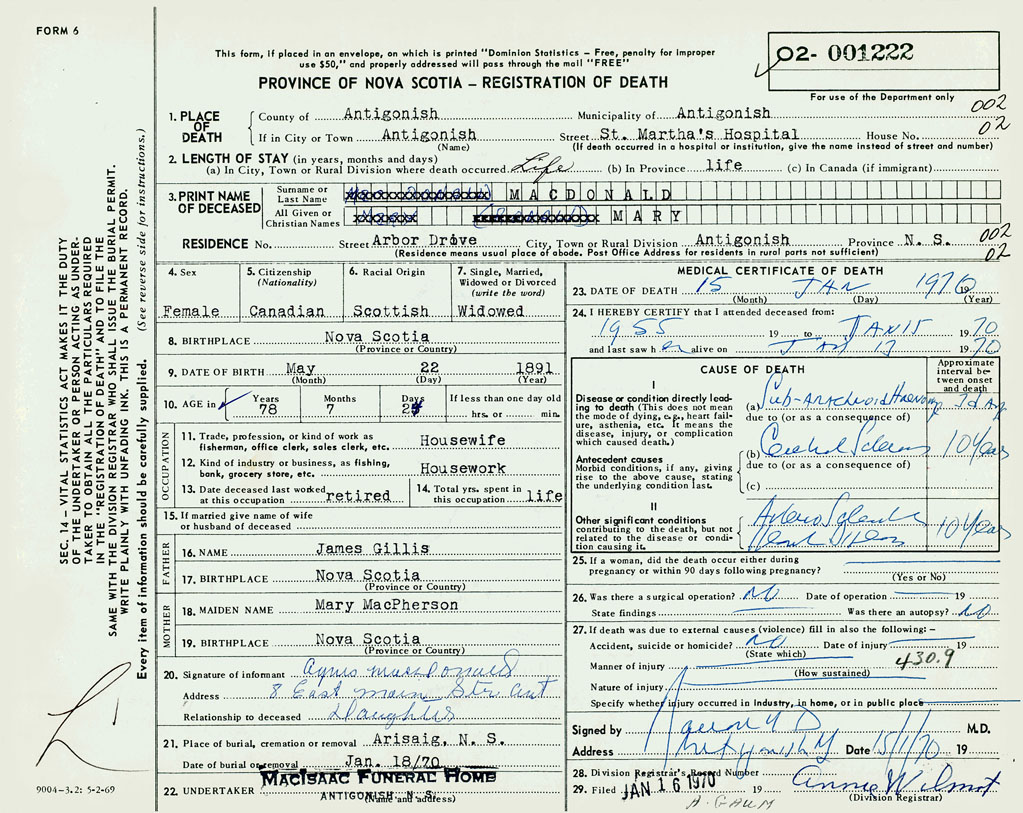 FORM 6
This form, if placed in an envelope, on which is printed "Dominion Statistics – Free, penalty for improper
use $50," and properly addressed will pass through the mail "FREE"
O2- 001222
PROVINCE OF NOVA SCOTIA – REGISTRATION OF DEATH
For use of the Department only
002
02
1. PLACE OF DEATH
County of Antigonish Municipality of Antigonish
If in City or Town Antigonish Street St. Martha's Hospital House No.
(Name) (If death occurred in a hospital or institution, give the name instead of street and number)
2. LENGTH OF STAY (in years, months and days)
(a) In City, Town or Rural Division where death occurred Life (b) In Province life (c) In Canada (if immigrant)
3. PRINT NAME OF DECEASED
Surname or Last Name MACDONALD
All Given or Christian Names MARY
RESIDENCE No. Street Arbor Drive City, Town or Rural Division Antigonish Province N. S.
002
02
(Residence means usual place of abode. Post Office Address for residents in rural parts not sufficient)
4. Sex
Female
5. Citizenship
(Nationality)
Canadian
6. Racial Origin
Scottish
7. Single, Married,
Widowed or Divorced
(write the word)
Widowed
8. BIRTHPLACE Nova Scotia
(Province or Country)
9. DATE OF BIRTH May 22 1891
(Month) (Day) (Year)
10. AGE in
Years Months Days If less than one day old
78 7 hrs. or min.
OCCUPATION
11. Trade, profession, or kind of work as
fisherman, office clerk, sales clerk, etc. Housewife
12. Kind of industry or business, as fishing,
bank, grocery store, etc. Housework
13. Date deceased last worked
at this occupation retired
14. Total yrs. spent in
this occupation life
15. If married give name of wife
or husband of deceased
FATHER
16. NAME James Gillis
17. BIRTHPLACE Nova Scotia
(Province or Country)
MOTHER
18. MAIDEN NAME Mary MacPherson
19. BIRTHPLACE Nova Scotia
(Province or Country)
20. Signature of informant Agnes MacDonald
Address 8 East Main Str Ant
Relationship to deceased Daughter
21. Place of burial, cremation or removal Arisaig, N. S.
Date of burial or removal Jan. 18/70
22. UNDERTAKER MACISAAC FUNERAL HOME
ANTIGONISH, N. S.
(Name and address)
MEDICAL CERTIFICATE OF DEATH
23. DATE OF DEATH 15 JAN 1970 19
(Month) (Day) (Year)
24. I HEREBY CERTIFY that I attended deceased from:
1955 19 to JAN 15 1970
and last saw h er alive on JAN 13 1970
CAUSE OF DEATH
Approximate
interval be-
tween onset
and death
I
Disease or condition directly lead-
ing to death (This does not mean
the mode of dying, e.g., heart fail-
ure, asthenia, etc. It means the
disease, injury, or complication
which caused death.)
(a) Sub-arachnoid 3 day
due to (or as a consequence of)
Antecedent causes
Morbid conditions, if any, giving
rise to the above cause, stating
the underlying condition last.
(b) 10 Years
due to (or as a consequence of)
(c)
II
Other significant conditions
contributing to the death, but not
related to the disease or condi-
tion causing it.
10 Years
25. If a woman, did the death occur either during
pregnancy or within 90 days following pregnancy?
(Yes or No)
26. Was there a surgical operation? NO Date of operation 19
State findings Was there an autopsy? NO
27. If death was due to external causes (violence) fill in also the following: –
Accident, suicide or homicide? NO Date of injury 19
(State which)
430.9
Manner of injury
(How sustained)
Nature of injury
Specify whether injury occurred in Industry, in home, or in public place
Signed by M.D.
Address Date 15/1/70 19
28. Division Registrar's Record Number
29. Filed JAN 16 1970 19 Annie Wilmot
(Division Registrar)
A. GAUM
SEC. 14 – VITAL STATISTICS ACT MAKES IT THE DUTY
OF THE UNDERTAKER OR PERSON ACTING AS UNDER-
TAKER TO OBTAIN ALL THE PARTICULARS REQUIRED
IN THE "REGISTRATION OF DEATH" AND TO FILE THE
SAME WITH THE DIVISION REGISTRAR WHO SHALL ISSUE THE BURIAL PERMIT.
WRITE PLAINLY WITH UNFADING INK. THIS IS A PERMANENT RECORD.
Every item of information should be carefully supplied. (See reverse side for instructions.)
9004-3.2: 5-2-69